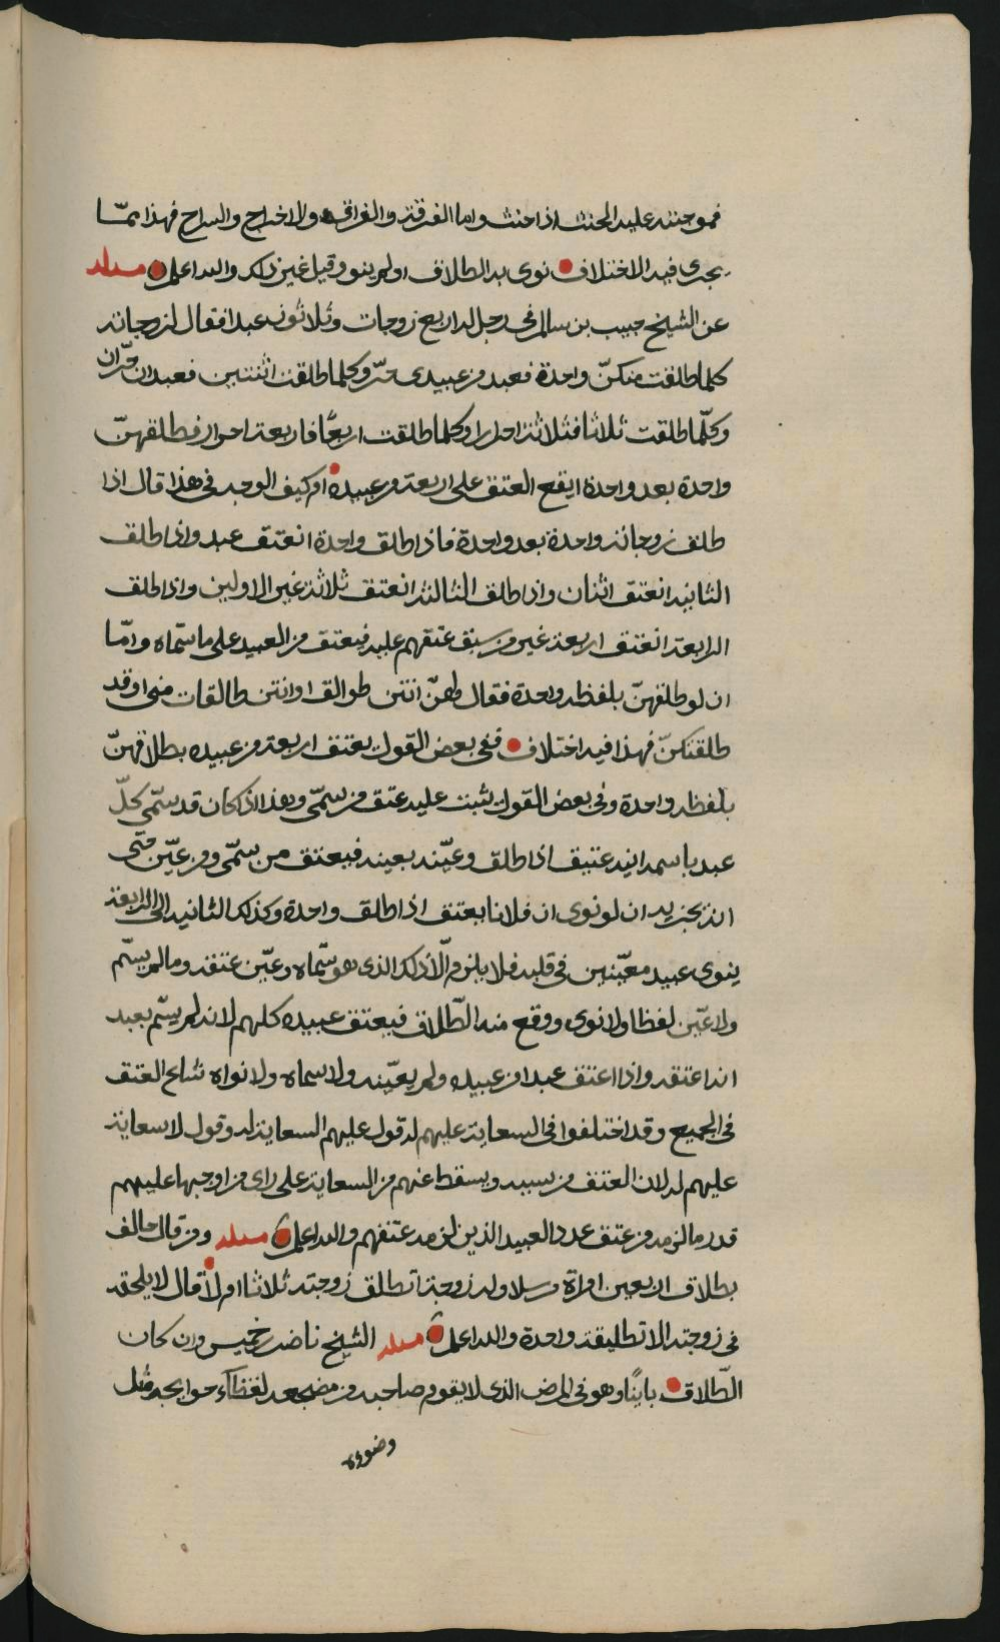 فموجبته عليه الحنث اذا حنث واما الفرقة والفراق والاخراج والسراح فهذا ممّا
يجرى فيه الاختلاف نوى به الطلاق اولم ينو وقيل غير ذلك والله اعلم مسئلة
عن الشيخ حبيب بن سالم فى رجل له اربع زوجات وثلاثون عبدا فقال لزوجاته
كلما طلقت منكنّ واحدة فعبد من عبيدى حرّ وكلما طلقت اثنتين فعبدان حرّان
وكلّما طلقت ثلاثا فثلاثة احرار وكلما طلقت اربعًا فاربعة احرار فطلقهنّ
واحدة بعد واحدة ايقع العتق على اربعة من عبيده ام كيف الوجه فى هذا قال اذا
طلق زوجاته واحدة بعد واحدة فاذا طلق واحدة انعتق عبد واذا طلق
الثانية انعتق اثنان واذا طلق الثالثة انعتق ثلاثة غير الاولين واذا طلق
الرابعة انعتق اربعة غير من سبق عتقهم عليه فيعتق من العبيد على ما سمّاه وامّا
ان لو طلقهنّ بلفظه واحدة فقال لهنّ انتن طوالق او انتن طالقات منى او قد
طلقتكنّ فهذا فيه اختلاف ففى بعض القول يعتق اربعة من عبيده بطلاقهنّ
بلفظه واحدة وفى بعض القول يثبت عليه عتق من سمّى وهذا اذا كان قد سمّى كلّ
عبد باسمه انه عتيق اذا طلق وعيّنه بعينه فيعتق من سمّى ومن عيّن حتى
انه يجزيه ان لو نوى ان فلانا يعتق اذا طلق واحدة وكذلك الثانية الى الرابعة
ينوى عبيد معيّنين فى قلبه فلا يلزمه الّا ذلك الذى هو سمّاه وعيّن عتقه وما لم يسمّ
ولا عيّن لفظا ولا نوى ووقع منه الطّلاق فيعتق عبيده كلهم لانه لم يسمّ بعبد
انه اعتقه واذا اعتق عبدا من عبيده ولم يعيّنه ولا سماه ولا نواه شاع العتق
فى الجميع وقد اختلفوا فى السعاية عليهم له قول عليهم السعاية له وقول لا سعاية
عليهم له لان العتق من سببه ويسقط عنهم من السعاية على راى من اوجبها عليهم
قدر ما لزمه من عتق عدد العبيد الذين لزمه عتقهم والله اعلم مسئلة ومن قال حالف
بطلاق اربعين امراة مرسلا وله زوجة اتطلق زوجته ثلاثا ام لا قال لا يلحقه
فى زوجته الا تطليقة واحدة والله اعلم مسئلة الشيخ ناصر بن خميس وان كان
الطّلاق باينًا وهو فى المرض الذى لا يقوم صاحبه من مضجعه لقضاء حوايجه مثل
وضوءه